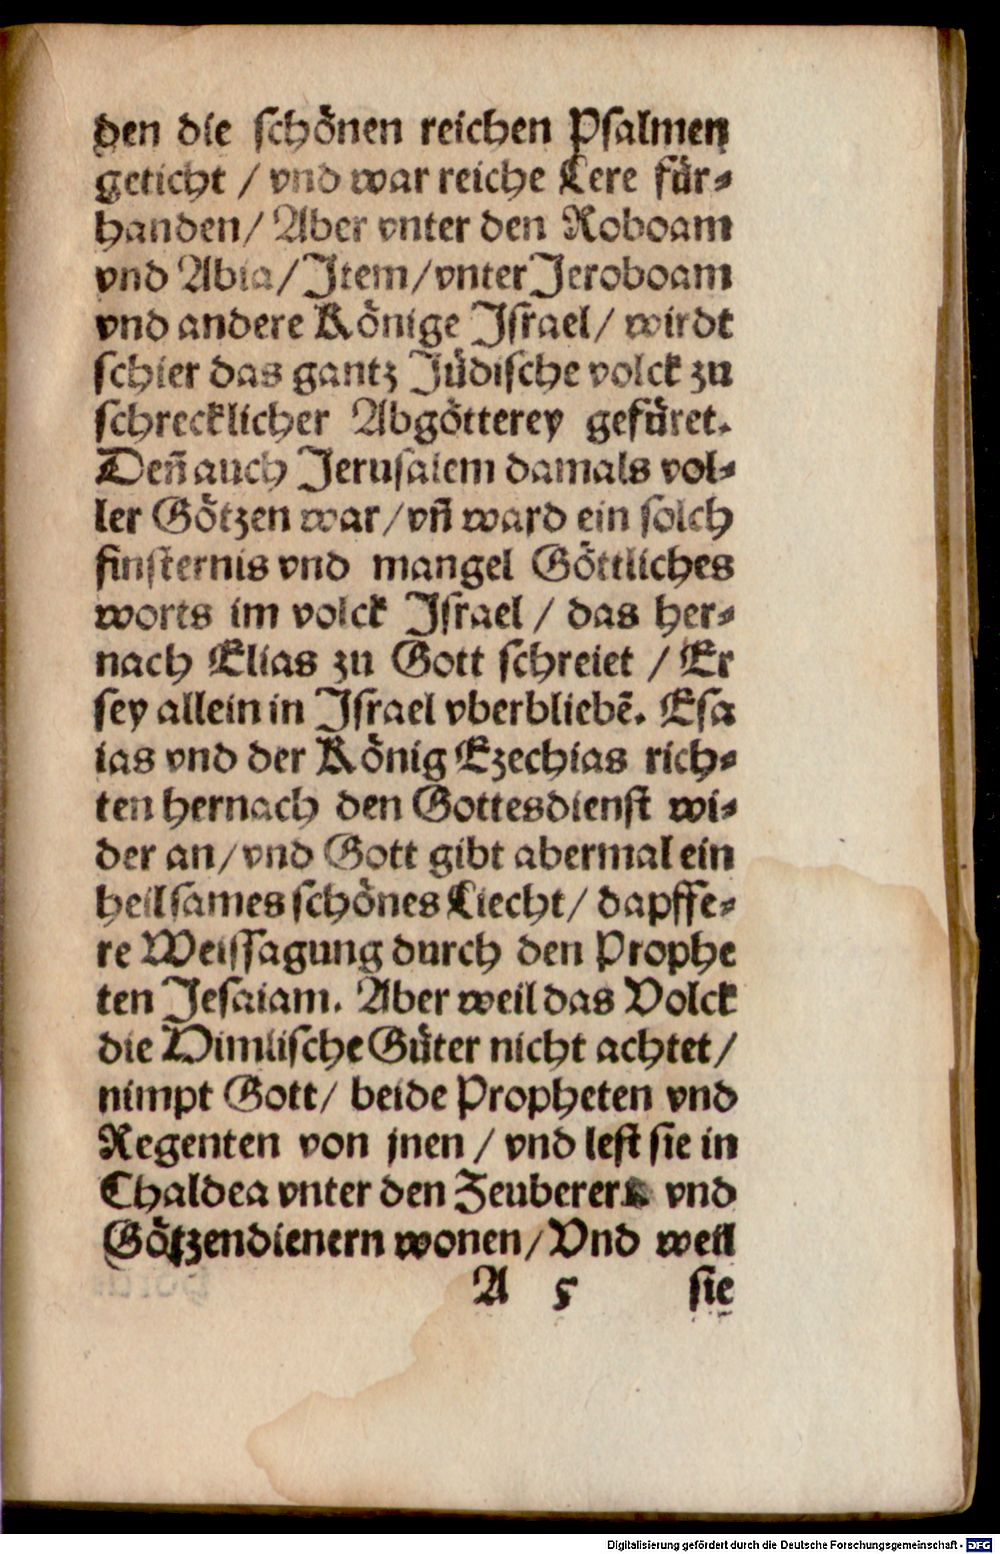 den die schönen reichen Psalmen
geticht / vnd war reiche Lere für⸗
handen/ Aber vnter den Roboam
vnd Abia/ Item/ vnter Jeroboam
vnd andere Könige Israel/ wirdt
schier das gantz Jüdische volck zu
schrecklicher Abgötterey gefüret.
Deñ auch Jerusalem damals vol⸗
ler Götzen war/ vñ ward ein solch
finsternis vnd mangel Göttliches
worts im volck Israel / das her⸗
nach Elias zu Gott schreiet / Er
sey allein in Israel vberbliebē. Esa
ias vnd der König Ezechias rich⸗
ten hernach den Gottesdienst wi⸗
der an/ vnd Gott gibt abermal ein
heilsames schönes Liecht/ dapffe⸗
re Weissagung durch den Prophe
ten Jesaiam. Aber weil das Volck
die Himlische Güter nicht achtet/
nimpt Gott/ beide Propheten vnd
Regenten von jnen / vnd lest sie in
Chaldea vnter den Zeuberern vnd
Götzendienern wonen/ Vnd weil
A 5 sie
Digitalisierung gefördert durch die Deutsche Forschungsgemeinschaft - DFG